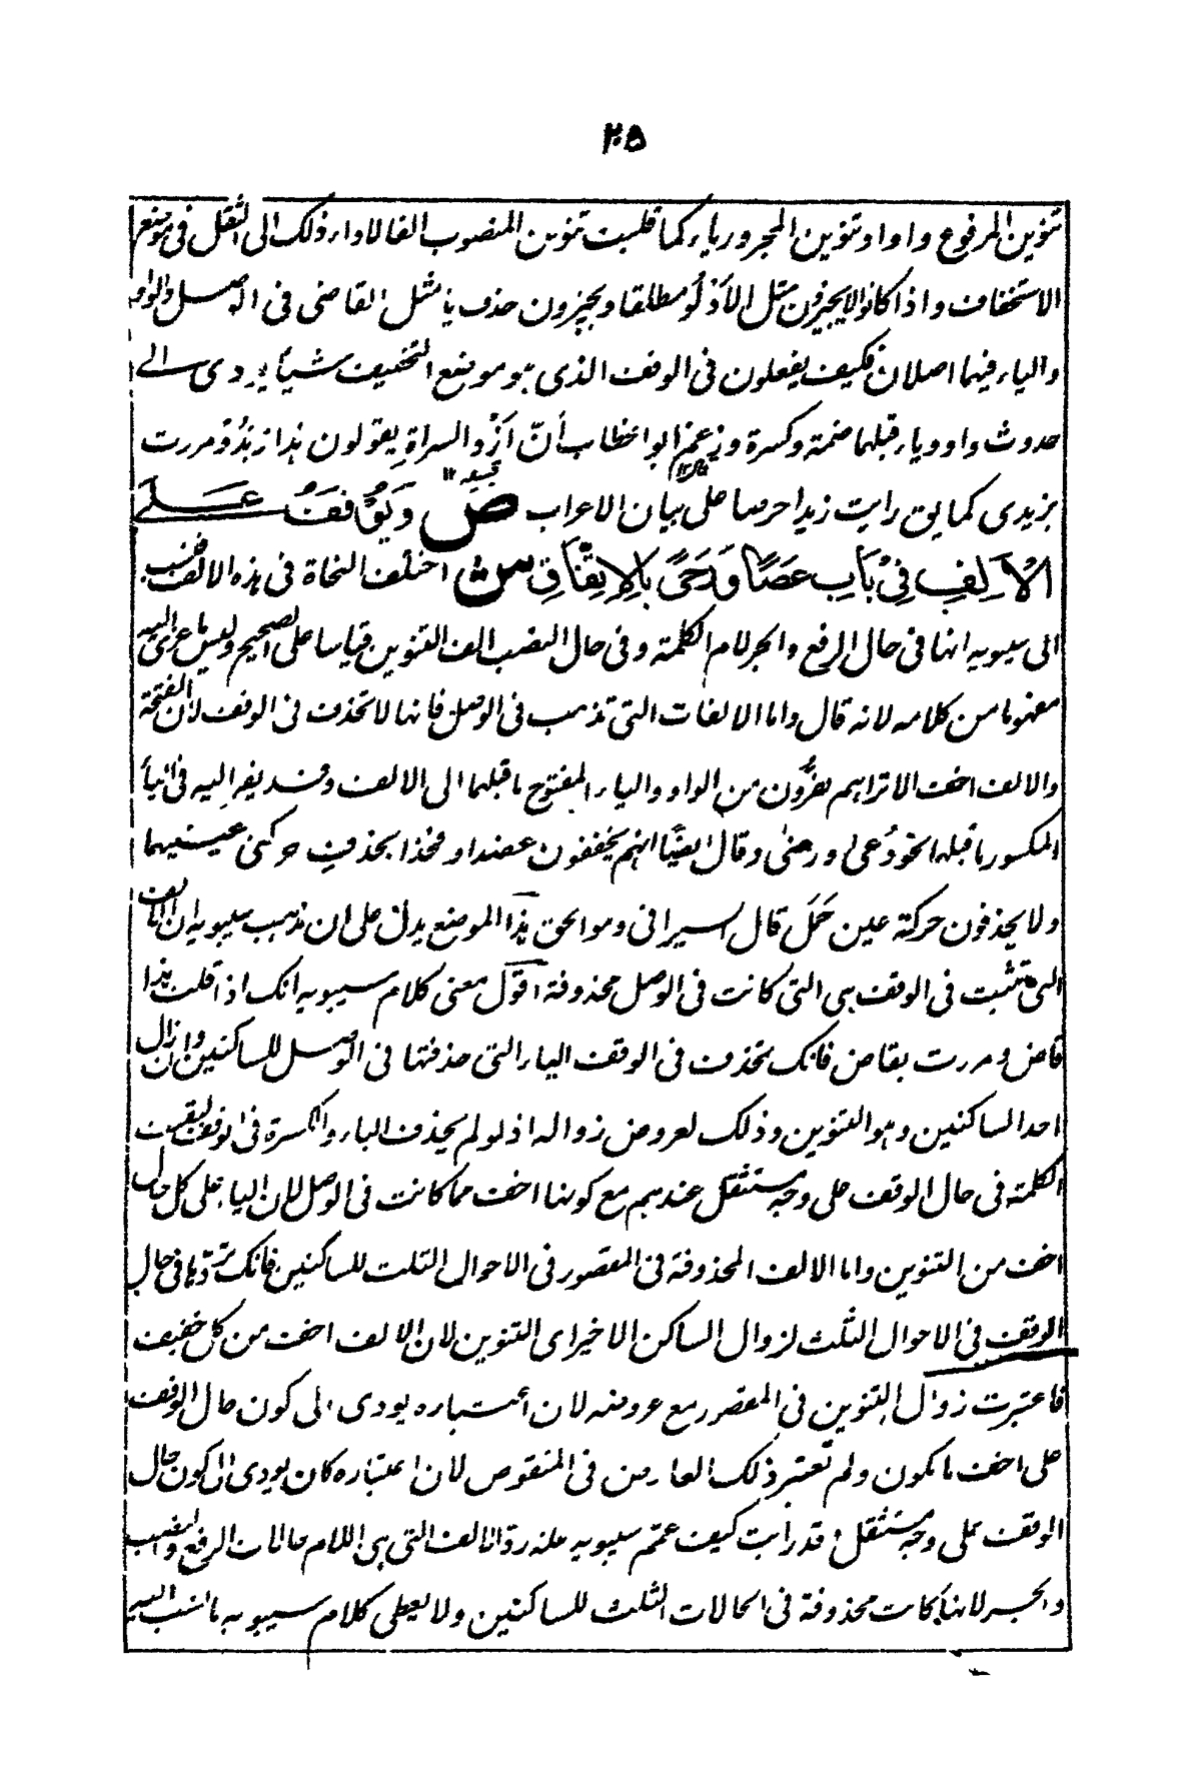 ٢٠٥
تنوين المرفوع واوا وتنوين المجرور ياء كما قلبت تنوين المنصوب الفا لاداء ذلك الى الثقل فى موضع
الاستخفاف واذا كانوا لا يجيزون مثل الأدلُو مطلقا ويجيزون حذف ياء مثل القاضى فى الوصل والواو
والياء فيهما اصلان فكيف يفعلون فى الوقف الذى هو موضع التخفيف شيئا يودى الى
حدوث واو وياء قبلهما ضمة وكسرة وزعم ابو الخطاب أنّ أزْد السراةِ يقولون هذا زيدُو ومررت
بزيدى كما يق رايت زيدا حرصا على بيان الاعراب ص وَيُوْقَفُ عَلَى
قبيله ١٢
الْاَلِفِ فِىْ بَابِ عَصًا وَرَحًى بِالْاِتِّفَاقِ ش اختلف النحاة فى هذه الالف فنسب
الى سيبويه انها فى حال الرفع والجر لام الكلمة وفى حال النصب الف التنوين قياسا على الصحيح وليس ما عزى اليه
مفهوما من كلامه لانه قال واما الالفات التى تذهب فى الوصل فانها لا تحذف فى الوقف لان الفتحة
والالف اخف الا تراهم يفرُّون من الواو والياء المفتوح ما قبلهما الى الالف وقد يفر اليه فى الياء
المكسور ما قبلها نحو دُعىٰ ورضىٰ وقال ايضًا انهم يخففون عضدا وفخذا بحذف حركتى عينيهما
ولا يحذفون حركة عين حَمَل قال السيرافى وهو الحق هذا الموضع يدل على ان مذهب سيبويه ان الالف
التى تثبت فى الوقف هى التى كانت فى الوصل محذوفة اقول معنى كلام سيبويه انك اذا قلت هذا
قاض ومررت بقاض فانك تحذف فى الوقف الياء التى حذفتها فى الوصل للساكنين وان زال
احد الساكنين وهو التنوين وذلك لعروض زواله اذ لو لم يحذف الياء والكسرة فى الوقف لبقيت
الكلمة فى حال الوقف على وجه مستثقل عندهم مع كونها اخف مما كانت فى الوصل لان الياء على كل حال
اخف من التنوين واما الالف المحذوفة فى المقصور فى الاحوال الثلث للساكنين فانك تردّها فى حال
الوقف فى الاحوال الثلث لزوال الساكن الاخير اى التنوين لان الالف اخف من كل خفيف
فاعتبرت زوال التنوين فى المقصور مع عروضه لان اعتباره يودى الى كون حال الوقف
على اخف ما يكون ولم تعتبر ذلك العارض فى المنقوص لان اعتباره كان يودى الى كون حال
الوقف على وجه مستثقل وقد رأيت كيف عمّم سيبويه علة ردّ الالف التى هى اللام حالات الرفع والنصب
والجر لانها كانت محذوفة فى الحالات الثلث للساكنين ولا يعطى كلام سيبويه ما نسب اليه